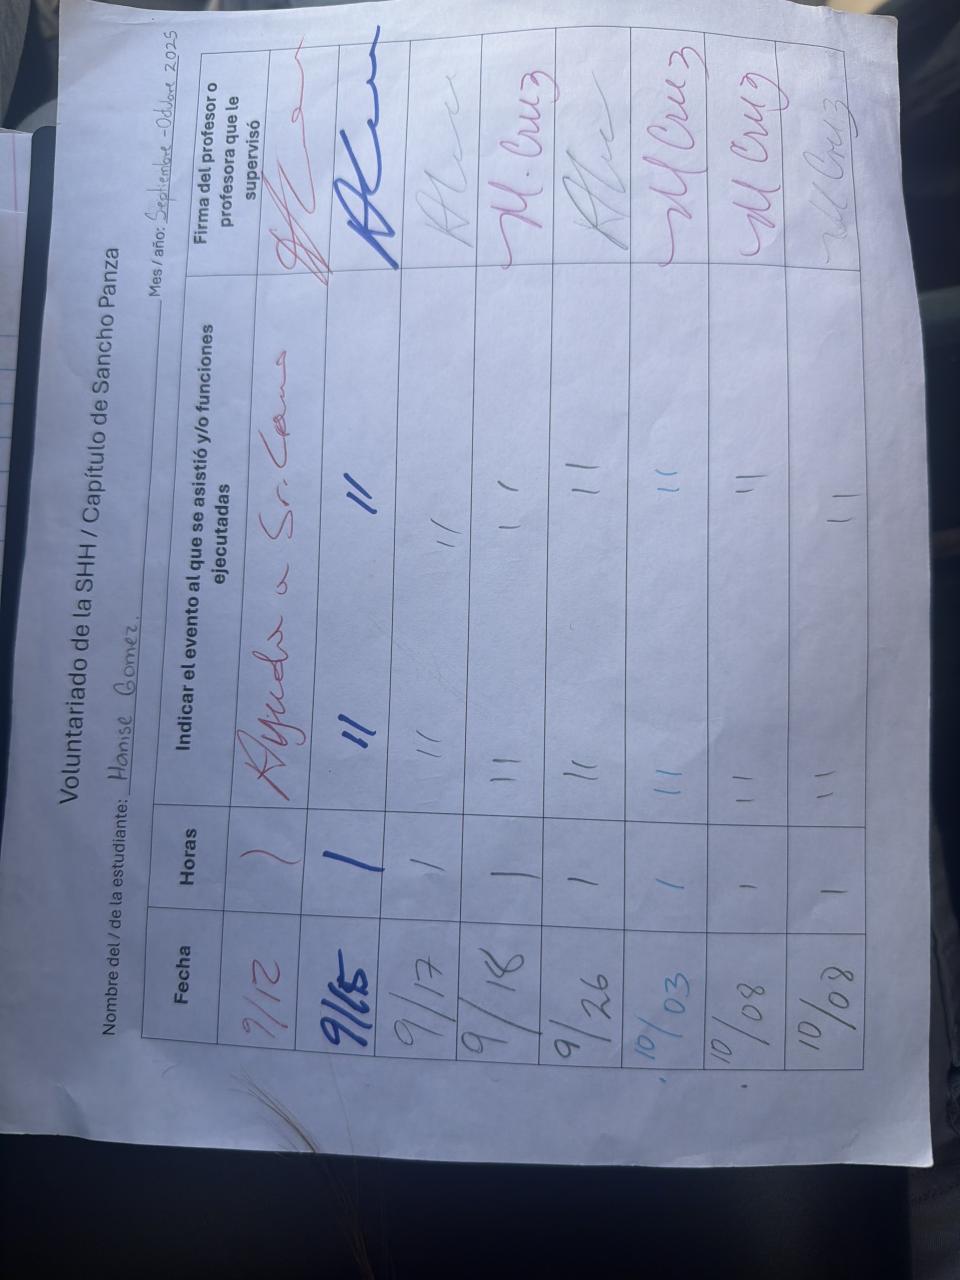 Voluntariado de la SHH / Capítulo de Sancho Panza
Nombre del / de la estudiante: Hanise Gomez. Mes / año: Septiembre - Octubre 2025
Fecha Horas Indicar el evento al que se asistió y/o funciones ejecutadas Firma del profesor o profesora que le supervisó
9/12 1 Ayuda a Sr. Cano
9/15 1 " "
9/17 1 " "
9/18 1 " " M. Cruz
9/26 1 " "
10/03 1 " " M Cruz
10/08 1 " " M Cruz
10/08 1 " " M Cruz